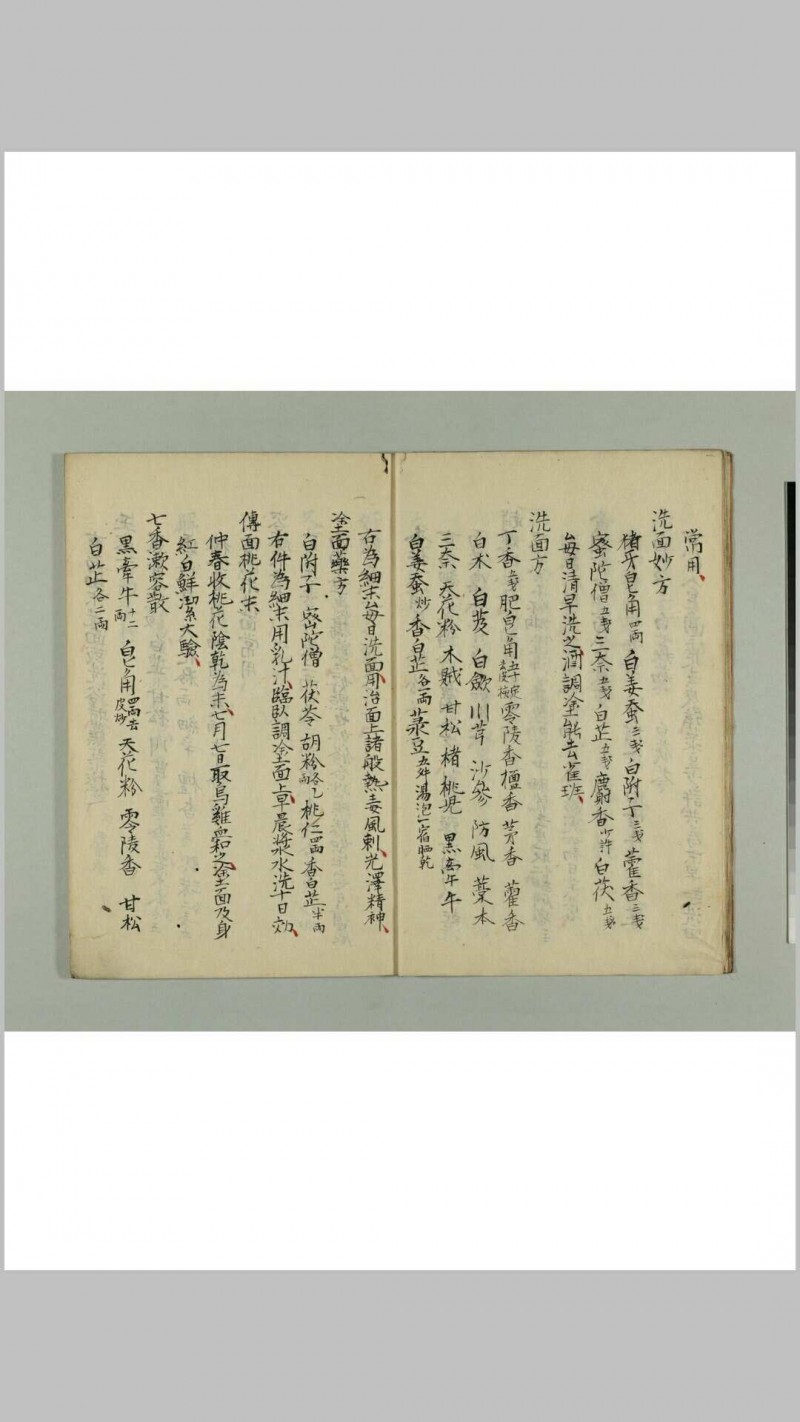 常用
洗面妙方
猪牙皂角四両 白姜蚕三戋 白附子三戋 藿香三戋
蜜陀僧五戋 三奈五戋 白芷五戋 麝香少許 白茯五戋
每日清早洗之酒調塗能去雀班
洗面方
丁香 肥皂角五十定去皮 零陵香 檀香 茅香 藿香
白朮 白芨 白歛 川芎 沙參 防風 藁本
三奈 天花粉 木賊 甘松 楮桃児 黒牽牛
白姜蚕炒 香白芷各一両 菉豆五升湯泡一宿晒乾
右為細末每日洗面用治面上諸般熱毒風刺光澤精神
塗面藥方
白附子 密陀僧 茯苓 胡粉各乙両 桃仁四両 香白芷半両
右件為細末用乳汁臨臥調塗面上早晨漿水洗十日効
傅面桃花末
仲春收桃花陰乾為末七月七日取烏雞血和之塗面及身
紅白鮮潔大驗
七香漱容散
黒牽牛十二両 皂角四両去皮炒 天花粉 零陵香 甘松
白芷各二両